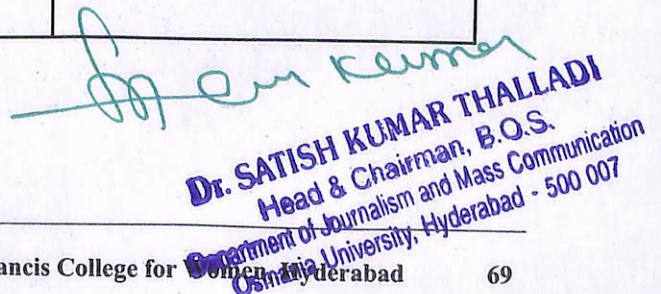 Kumar
Dr. SATISH KUMAR THALLADI
Head & Chairman, B.O.S.
Department of Journalism and Mass Communication
Osmania University, Hyderabad - 500 007
ancis College for Women, Hyderabad 69